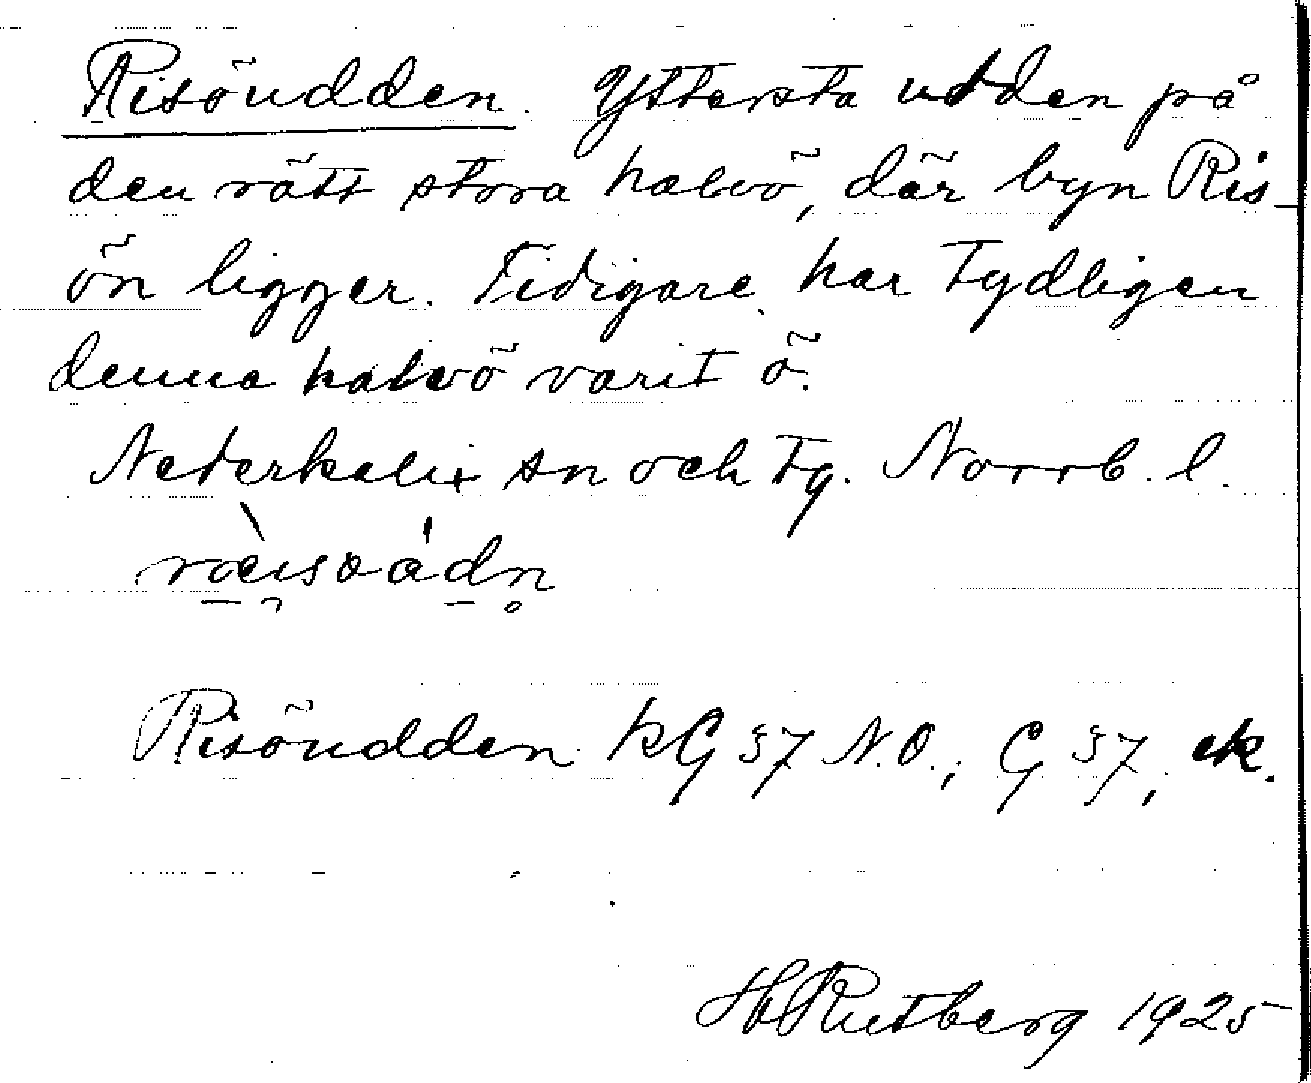 Risöudden. Yttersta udden på
den rätt stora halvö, där byn Ris-
ön ligger. Tidigare har tydligen
denna halvö varit ö.
Nederkalix sn och tg. Norrb. l.
Risöudden kG 57 N.O., G 57, ek.
H Rutberg 1925